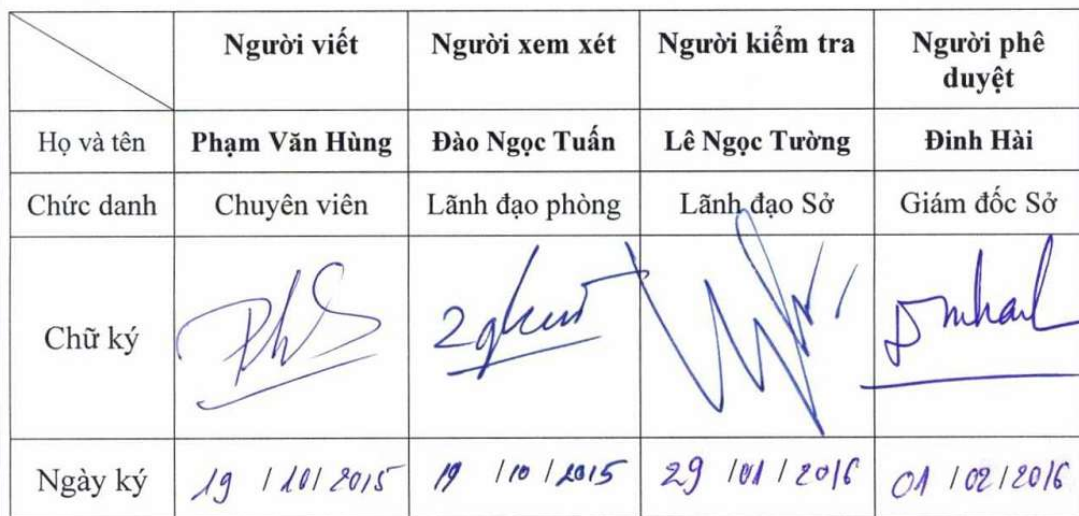 Người viết Người xem xét Người kiểm tra Người phê
duyệt
Họ và tên Phạm Văn Hùng Đào Ngọc Tuấn Lê Ngọc Tường Đinh Hài
Chức danh Chuyên viên Lãnh đạo phòng Lãnh đạo Sở Giám đốc Sở
Chữ ký
Ngày ký 19 / 10 / 2015 19 / 10 / 2015 29 / 01 / 2016 01 / 02 / 2016